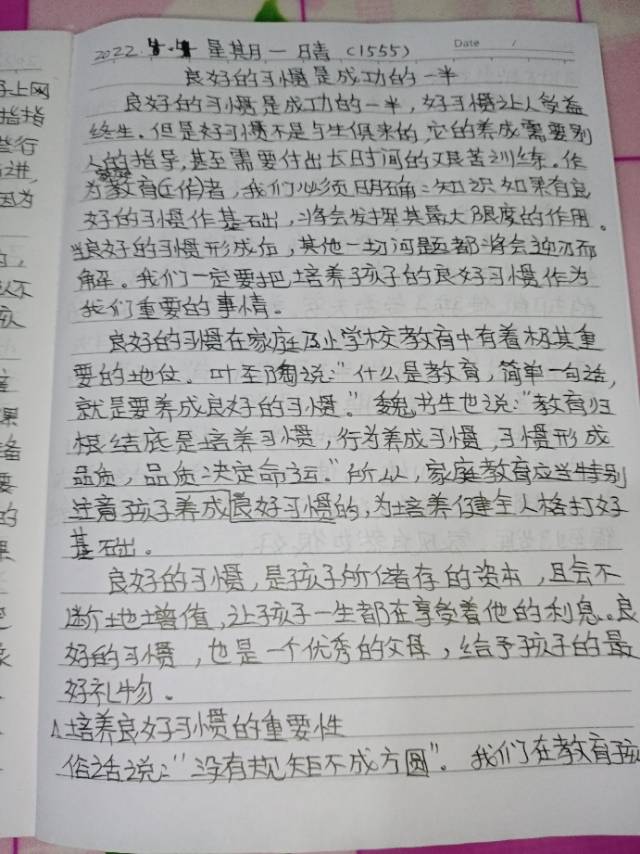 2022. 星期一 晴 (1555)
Date /
良好的习惯是成功的一半
良好的习惯是成功的一半，好习惯让人受益
终生。但是好习惯不是与生俱来的，它的养成需要别
人的指导，甚至需要付出长时间的艰苦训练。作
为家庭教育工作者，我们必须明确：知识如果有良
好的习惯作基础，将会发挥其最大限度的作用。
当良好的习惯形成后，其他一切问题都将会迎刃而
解。我们一定要把培养孩子的良好习惯作为
我们重要的事情。
良好的习惯在家庭及小学校教育中有着极其重
要的地位。叶圣陶说："什么是教育，简单一句话，
就是要养成良好的习惯。"魏书生也说："教育归
根结底是培养习惯，行为养成习惯，习惯形成
品质，品质决定命运。"所以，家庭教育应当特别
注意孩子养成良好习惯的，为培养健全人格打好
基础。
良好的习惯，是孩子所储存的资本，且会不
断地增值，让孩子一生都在享受着他的利息。良
好的习惯，也是一个优秀的父母，给予孩子的最
好礼物。
培养良好习惯的重要性
俗话说："没有规矩不成方圆"。我们在教育孩
子上网
指指
些行
因为